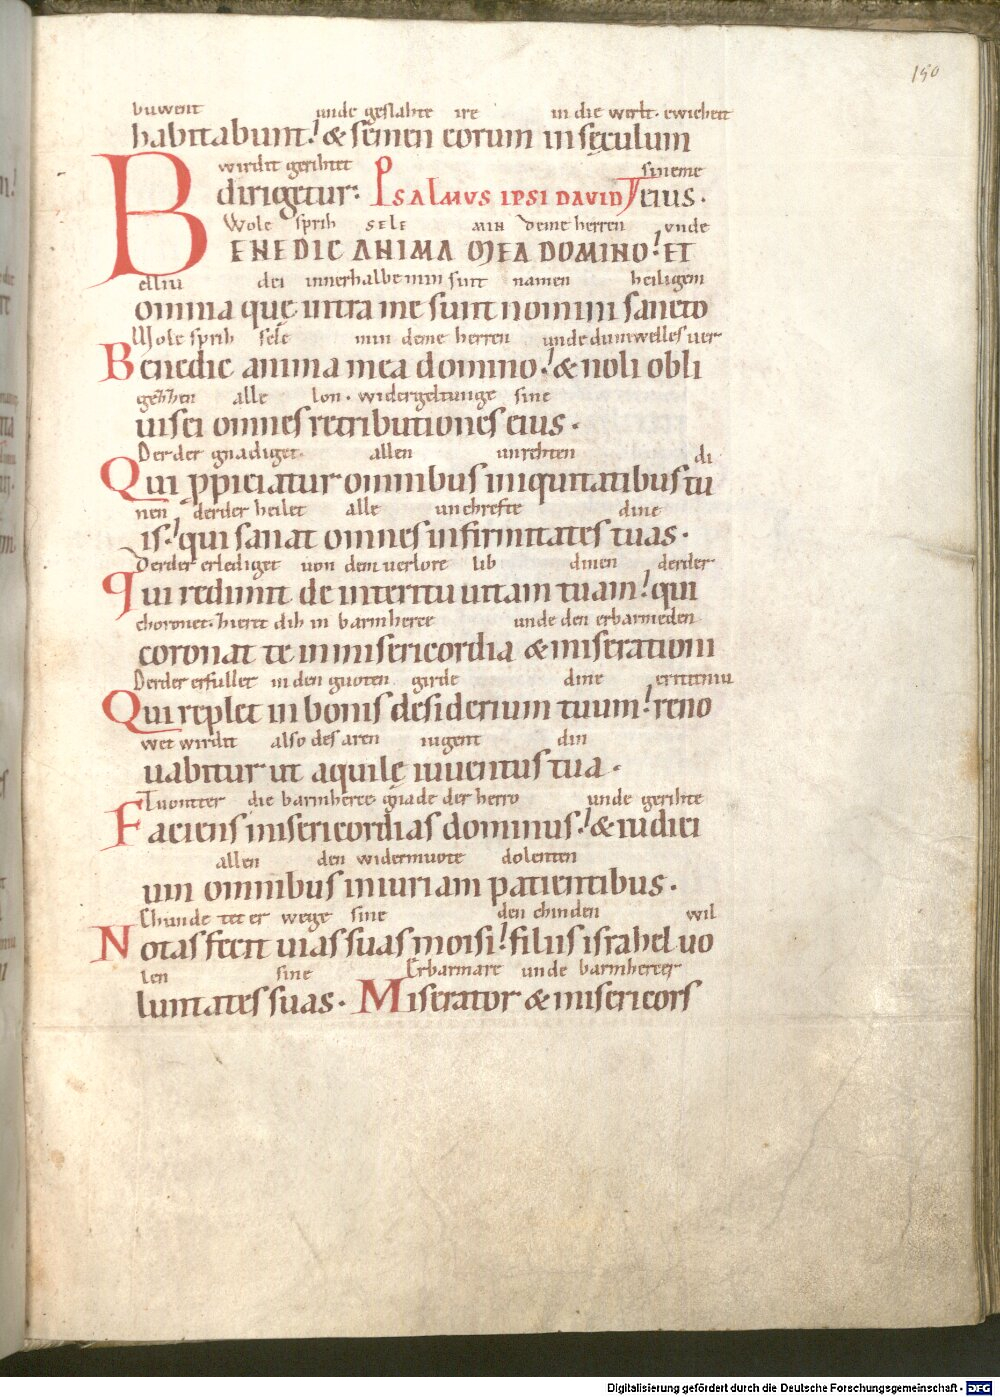 150
buwent unde geslahte ire in die werlt. ewicheit
habitabunt. & semen eorum in sęculum
wirdit gerihtet sineme
dirigetur. PSALMVS IPSI DAVID eius.
Wole sprih SELE MIN deme herren vnde
BENEDIC ANIMA MEA DOMINO. ET
elliu dei innerhalbe min sint namen heiligem
omnia quę intra me sunt nomini sancto
Wole sprih sele min deme herren unde du niwelles ver
Benedic anima mea domino. & noli obli
alle lon. widergeltunge sine
uisci omnes retributiones eius.
Der der gnadiget. allen unrehten di
Qui ppiciatur omnibus iniquitatibus tu
nen derder heilet alle unchrefte dine
is. qui sanat omnes infirmitates tuas.
Derder erlediget von dem verlore lib dinen derder
qui redimit de interitu uitam tuam. qui
choronet. zieret dih in barmherce unde den erbarmeden
coronat te in misericordia & miserationi
Derder erfullet in den guoten girde dine erniuniu
Qui replet in bonis desiderium tuum. reno
wet wirdit also des aren iugent din
uabitur ut aquilę iuuentus tua.
Tuonter die barmherce. gnade der herro unde gerihte
Faciens misericordias dominus. & iudici
allen den widermuote dolenten
um omnibus iniuriam patientibus.
Chunde tet er wege sine den chinden wil
Notas fecit uias suas moisi. filiis israhel uo
len sine Erbarmare unde barmhercer
luntates suas. Miserator & misericors
Digitalisierung gefördert durch die Deutsche Forschungsgemeinschaft - DFG